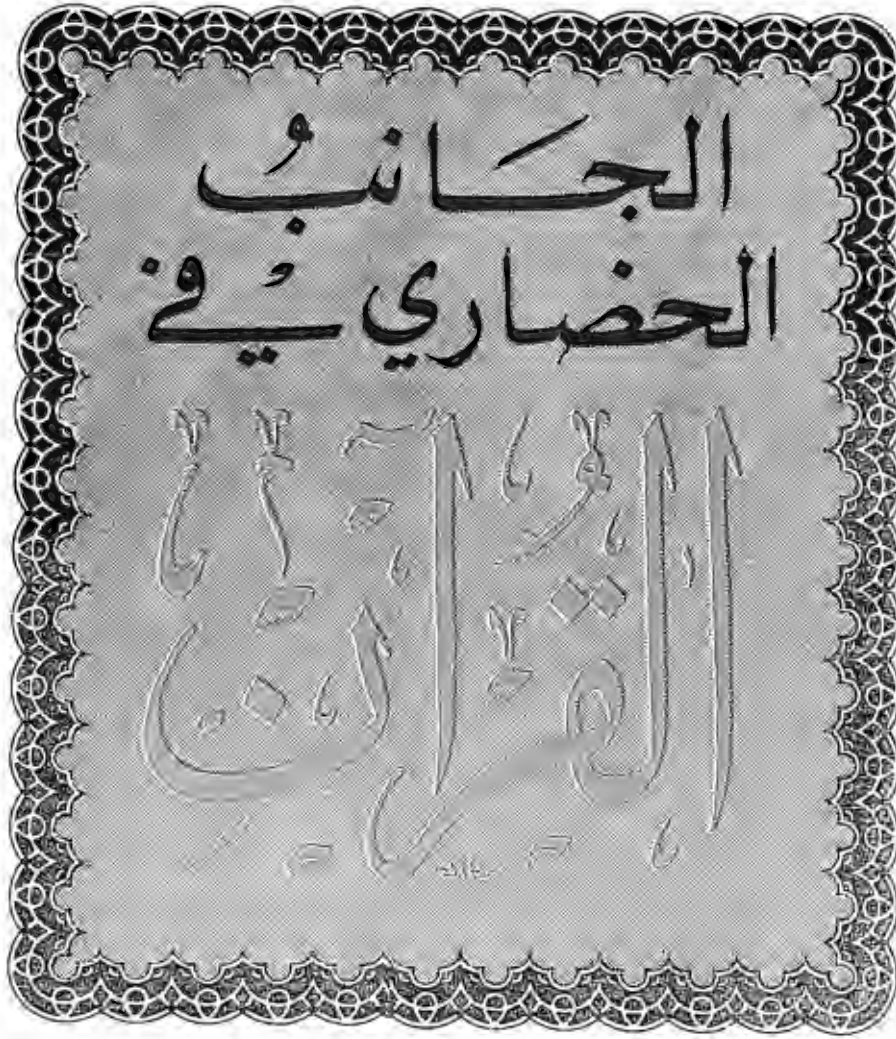 الجَانبُ
الحضاريُ في
القُرآن